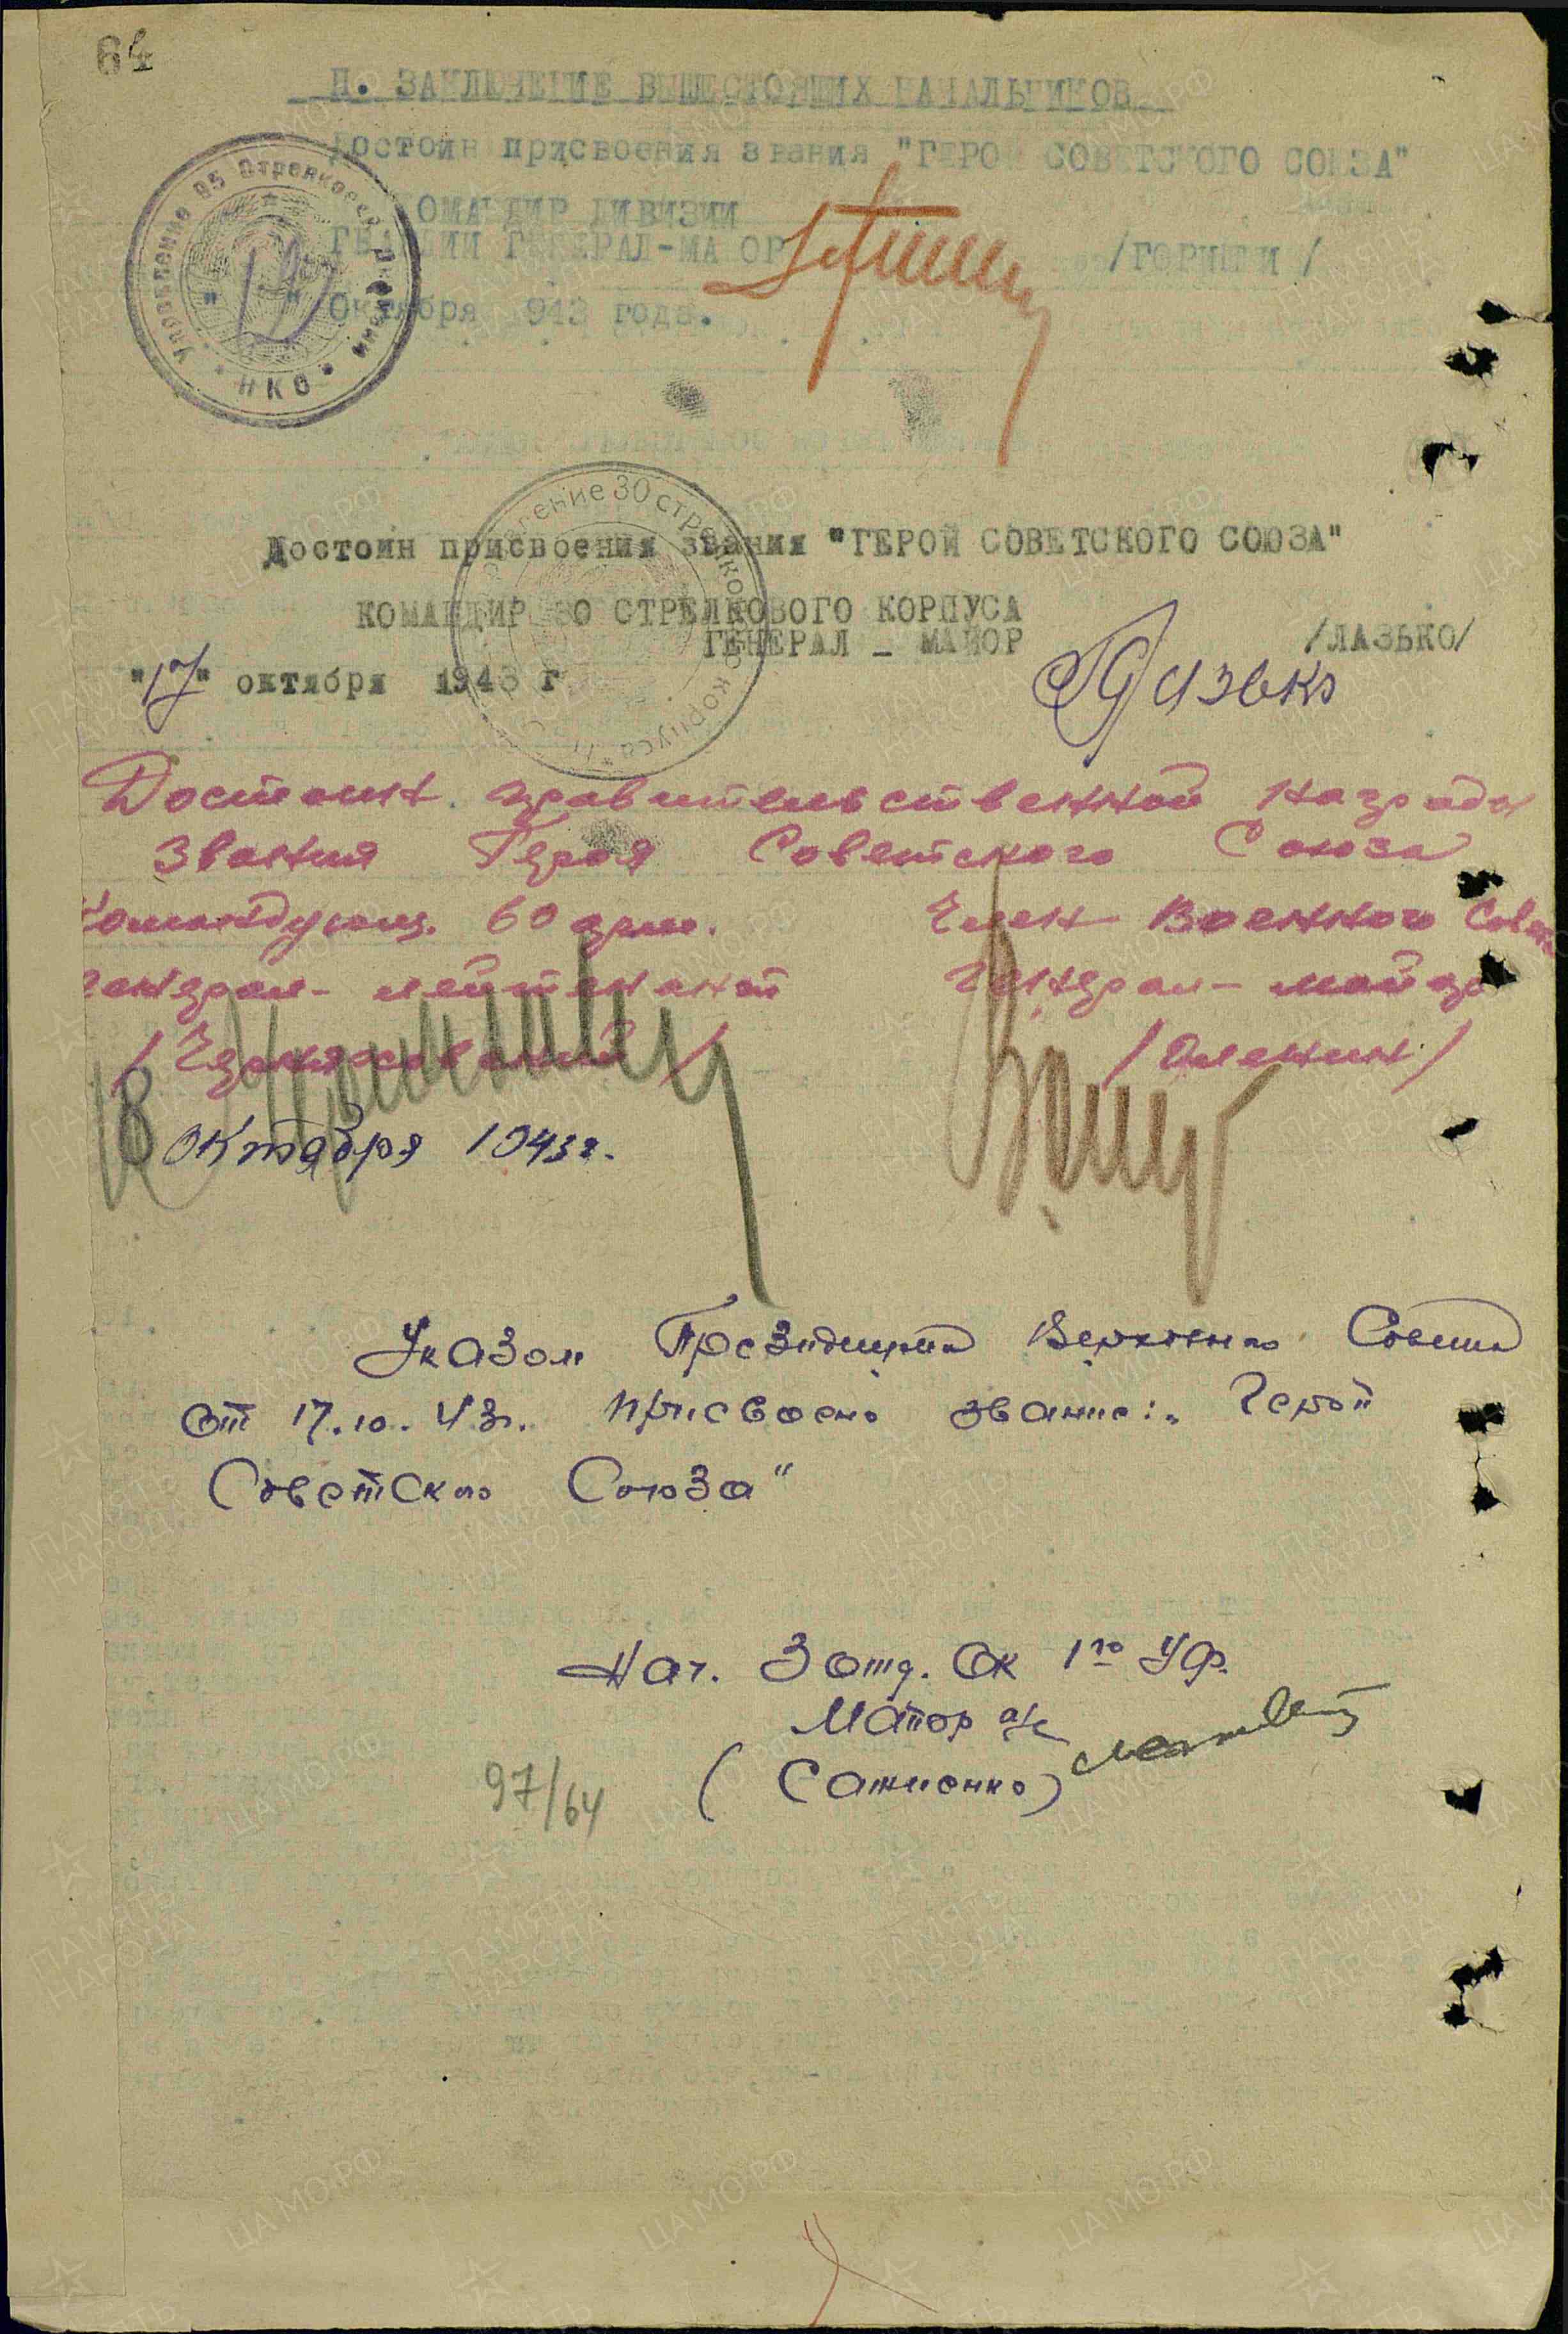 64
П. ЗАКЛЮЧЕНИЕ ВЫШЕСТОЯЩИХ НАЧАЛЬНИКОВ
Достоин присвоения звания "ГЕРОЙ СОВЕТСКОГО СОЮЗА"
КОМАНДИР ДИВИЗИИ
ГВАРДИИ ГЕНЕРАЛ-МАЙОР /ГОРИШНИ/
Октября 1943 года.
Управление 95 Стрелковой дивизии
НКО
Достоин присвоения звания "ГЕРОЙ СОВЕТСКОГО СОЮЗА"
КОМАНДИР 30 СТРЕЛКОВОГО КОРПУСА
ГЕНЕРАЛ - МАЙОР /ЛАЗЬКО/
"17" октября 1943 г.
Лазько
Управление 30 стрелкового корпуса
Достоин правительственной награды
звания Героя Советского Союза
Командующ. 60 арм. Член Военного Совета
генерал-лейтенант генерал-майор
/Черняховский/ /Оленин/
18 октября 1943 г.
Указом Президиума Верховного Совета
от 17.10.43г. присвоено звание: „Герой
Советского Союза"
Нач. 3 отд. ОК 1го УФ.
Майор а/с
(Сатиенко)
97/64
ЦАМО.РФ
ПАМЯТЬ НАРОДА